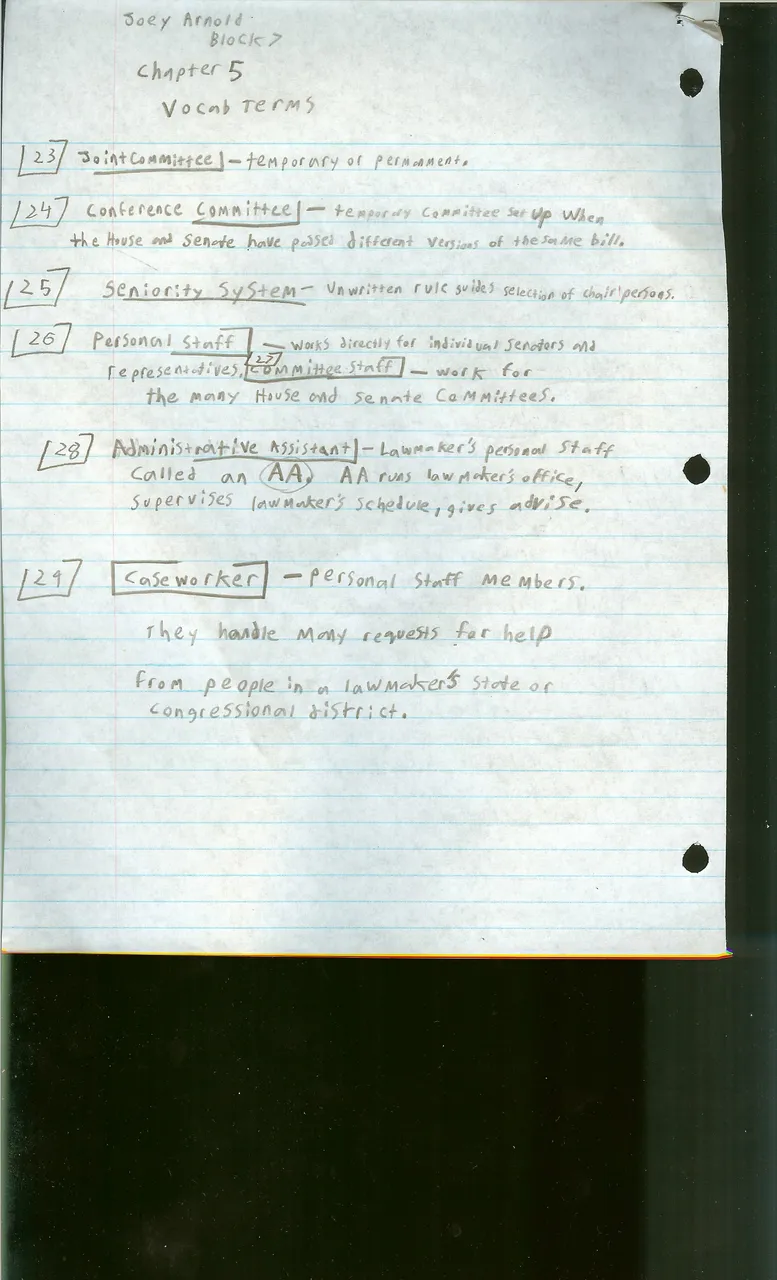 Joey Arnold
Block 7
Chapter 5
Vocab Terms
23 Joint Committee - temporary or permanment.
24 Conference Committee - temporary Committee set up when
the House and Senate have passed different versions of the same bill.
25 Seniority System - Unwritten rule guides selection of chair'persons.
26 Personal Staff - works directly for individual senators and
representatives. 27 Committee Staff - work for
the many House and Senate Committees.
28 Administrative Assistant - Lawmaker's personal staff
called an AA. AA runs lawmaker's office,
supervises lawmaker's schedule, gives advise.
29 Caseworker - personal staff members.
They handle many requests for help
from people in a lawmaker's state or
congressional district.